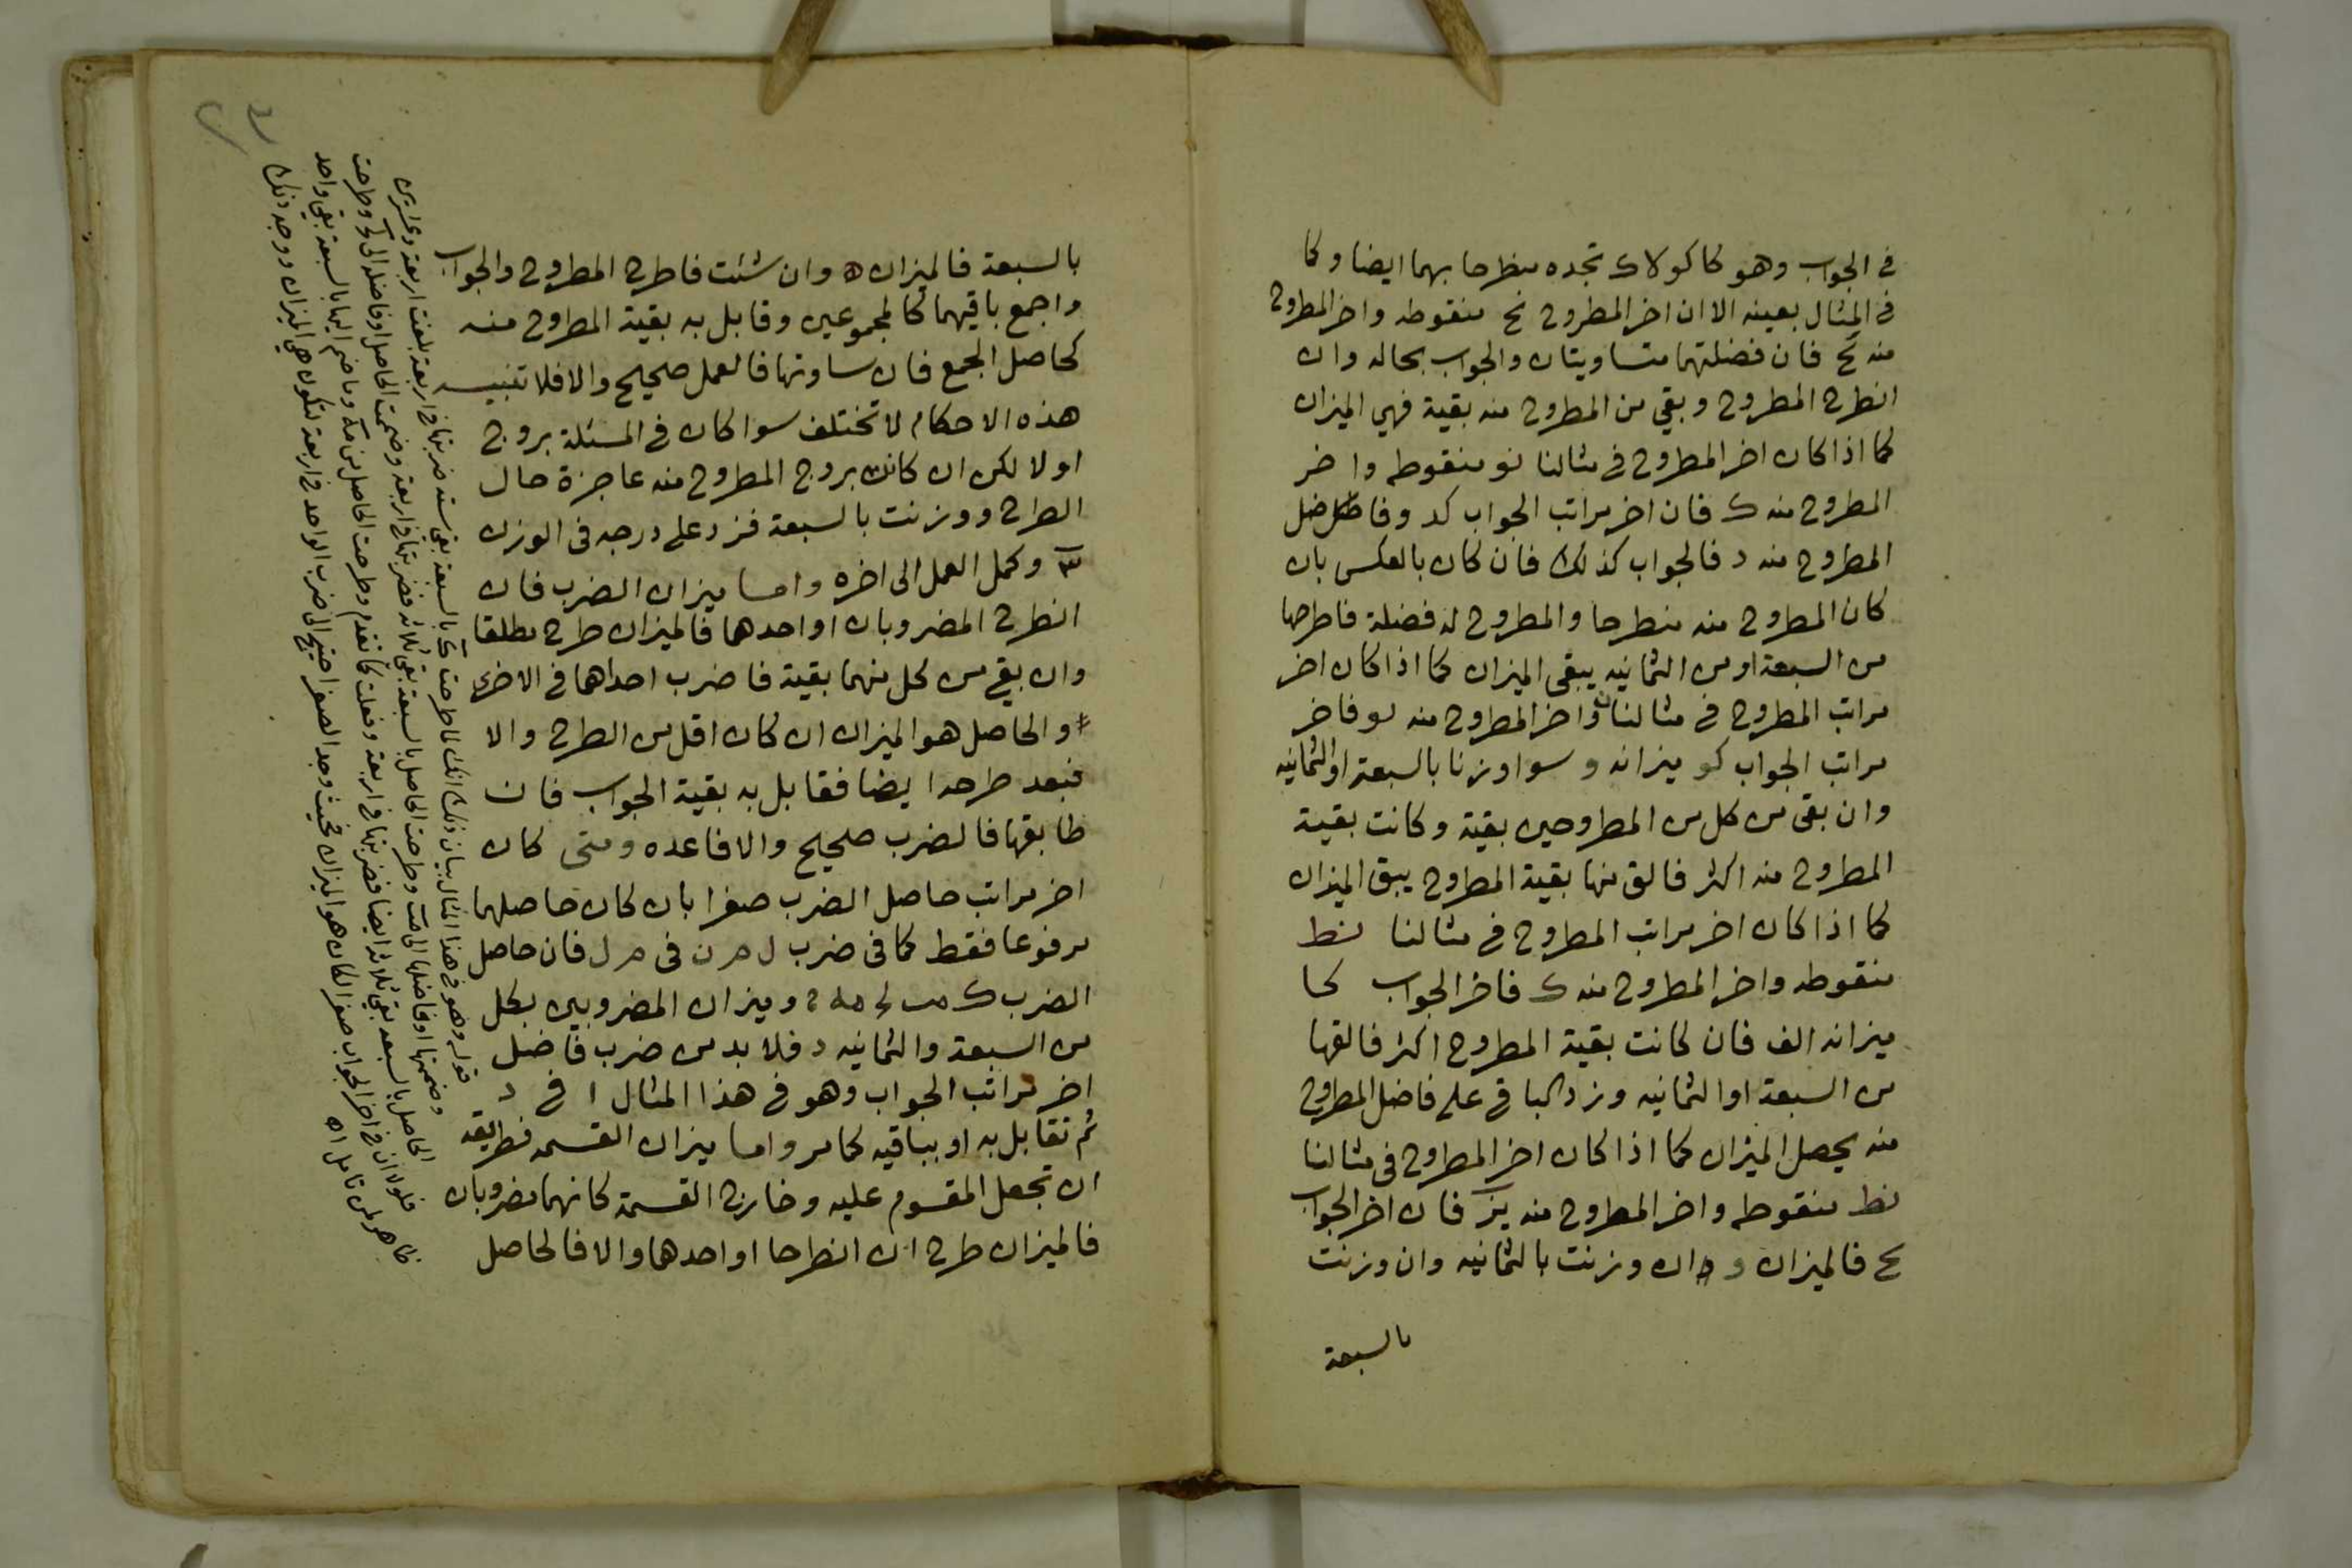 في الجواب وهو كا كو لا ك تجده منطرحا بهما ايضا وكا
في المثال بعينه الا ان اخر المطروح نح منقوطه واخر المطروح
منه لح فان فضلتهما متساويتان والجواب بحاله وان
انطرح المطروح وبقي من المطروح منه بقية فهي الميزان
كما اذا كان اخر المطروح في مثالنا نو منقوطه واخر
المطروح منه ك فان اخر مراتب الجواب كد وفاضل
المطروح منه د فالجواب كذلك فان كان بالعكس بان
كان المطروح منه منطرحا والمطروح له فضلة فاطرحها
من السبعة او من الثمانيه يبقى الميزان كما اذا كان اخر
مراتب المطروح في مثالنا ن واخر المطروح منه نو فاخر
مراتب الجواب كو ميزانه و سوا وزنا بالسبعة او الثمانيه
وان بقى من كل من المطروحين بقية وكانت بقية
المطروح منه اكثر فالق منها بقية المطروح يبق الميزان
كما اذا كان اخر مراتب المطروح في مثالنا نط
منقوطه واخر المطروح منه ك فاخر الجواب كا
ميزانه الف فان كانت بقية المطروح اكثر فالقها
من السبعة او الثمانيه وزد الباقي على فاضل المطروح
منه يحصل الميزان كما اذا كان اخر المطروح في مثالنا
نط منقوطه واخر المطروح منه يز فان اخر الجواب
يح فالميزان و ان وزنت بالثمانيه وان وزنت
بالسبعة
بالسبعة فالميزان ه وان شئت فاطرح المطروح والجواب
واجمع باقيهما كالمجموعين وقابل به بقية المطروح منه
كحاصل الجمع فان ساوتها فالعمل صحيح والا فلا تنبيه
هذه الاحكام لا تختلف سوا كان في المسئلة بروج
اولا لكن ان كانت بروج المطروح منه عاجزة حال
الطرح ووزنت بالسبعة فزد على درجه في الوزن
وكمل العمل الى اخره واما ميزان الضرب فان
انطرح المضروبان او احدهما فالميزان طرح مطلقا
وان بقي من كل منهما بقية فاضرب احداهما في الاخرى
والحاصل هو الميزان ان كان اقل من الطرح والا
فبعد طرحه ايضا فقابل به بقية الجواب فان
طابقها فالضرب صحيح والا فاعده ومتى كان
اخر مراتب حاصل الضرب صفرا بان كان حاصلهما
مرفوعا فقط كما في ضرب ل م ن في م ل فان حاصل
الضرب ك وميزان المضروبين بكل
من السبعة والثمانيه د فلا بد من ضرب فاضل
اخر مراتب الجواب وهو في هذا المثال ا في د
ثم تقابل به او بباقيه كما مر واما ميزان القسمه فطريقه
ان تجعل المقسوم عليه وخارج القسمة كانهما مضروبان
فالميزان طرح ان انطرحا او احدهما والا فالحاصل
قوله وهو في هذا المثال بيان ذلك انك لما طرحت ك بالسبعة بقي ستة ضربتها في اربعة بلغت اربعة وعشرين
وضممتها او فاضلها الى وطرحت الحاصل بالسبعة بقي ثلاثة فضربتها في اربعة وضممت الحاصل او فاضله الى وطرحت
الحاصل بالسبعة بقي ثلاثة ايضا فضربتها في اربعة وفعلت كما تقدم وطرحت الحاصل من وما ضم اليها بالسبعة بقي واحد
فلولا ان في اخر الجواب صفرا لكان هو الميزان فحيث وجد الصفر احتيج الى ضرب الواحد في اربعة لتكون هي الميزان ووجه ذلك
ظاهر لمن تامل اه